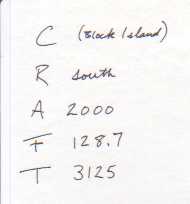 C (Block Island)
R south
A 2000
F 128.7
T 3125